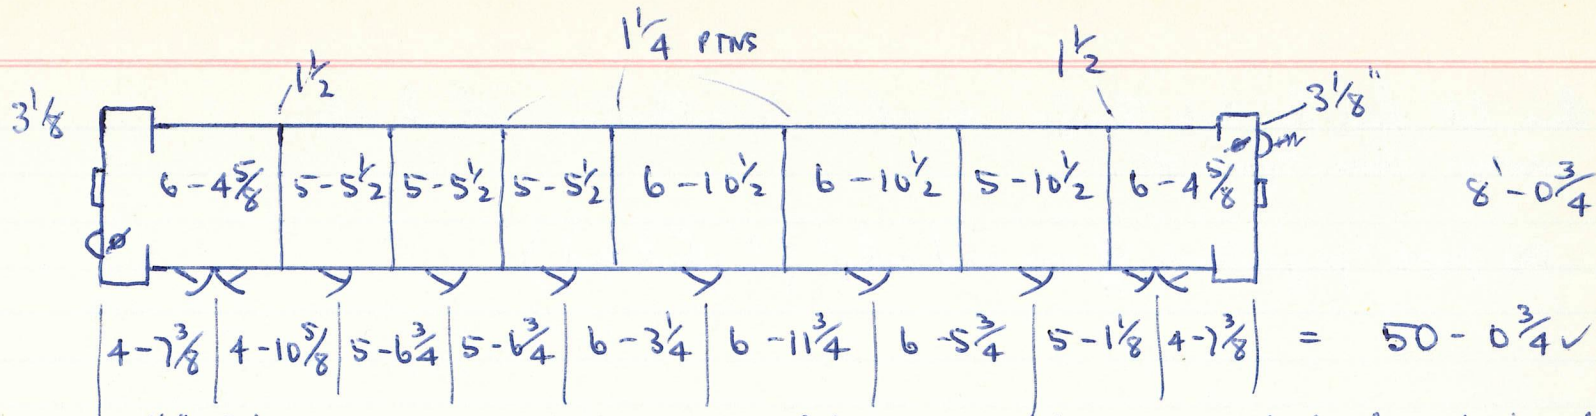 1 1/4 PTNS
1 1/2
1 1/2
3 1/8
3 1/8"
6 - 4 5/8 5 - 5 1/2 5 - 5 1/2 5 - 5 1/2 6 - 10 1/2 6 - 10 1/2 5 - 10 1/2 6 - 4 5/8
8' - 0 3/4
4 - 7 3/8 4 - 10 5/8 5 - 6 3/4 5 - 6 3/4 6 - 3 1/4 6 - 11 3/4 6 - 5 3/4 5 - 1 1/8 4 - 7 3/8 = 50 - 0 3/4 ✓